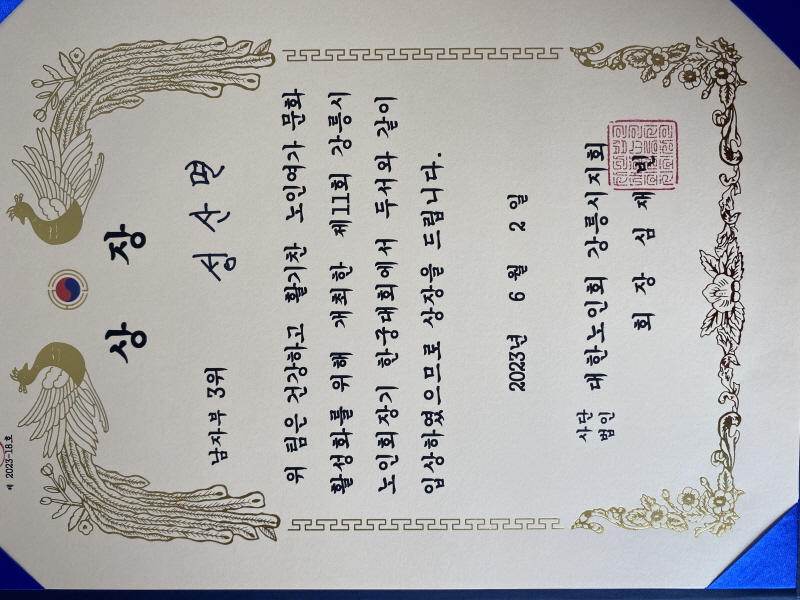 제 2023-18호
상장
남자부 3위
성산면
위 팀은 건강하고 활기찬 노인여가 문화
활성화를 위해 개최한 제11회 강릉시
노인회장기 한궁대회에서 두서와 같이
입상하였으므로 상장을 드립니다.
2023년 6월 2일
사단법인 대한노인회 강릉시지회
회장 심재빈